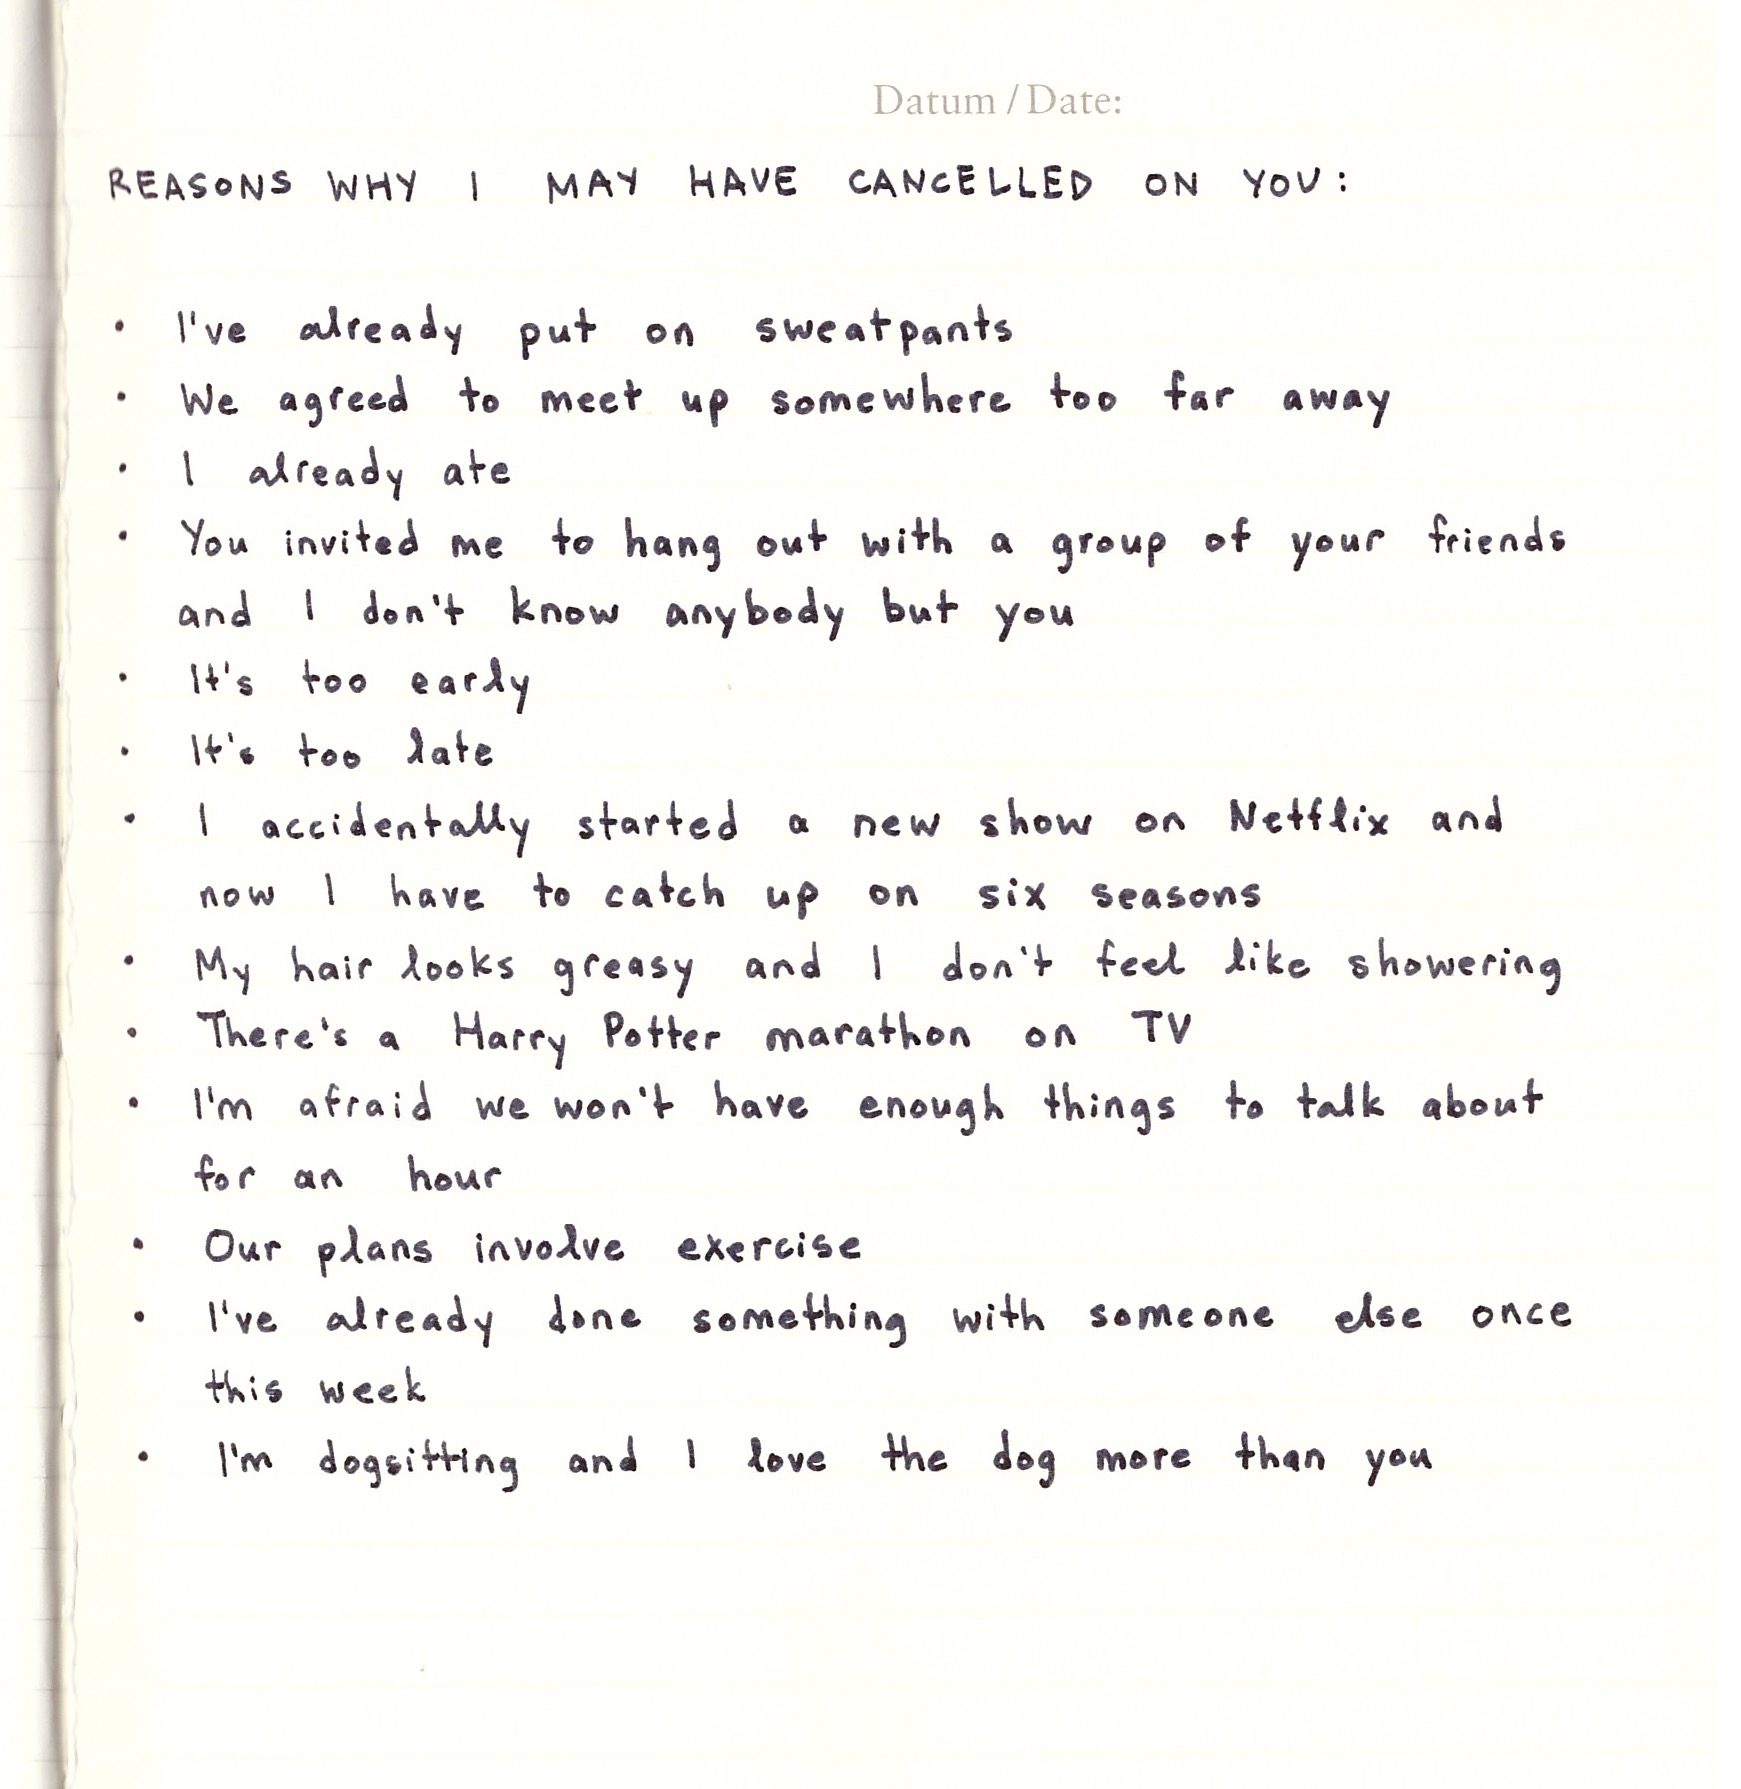 Datum / Date:
REASONS WHY I MAY HAVE CANCELLED ON YOU:
• I've already put on sweatpants
• We agreed to meet up somewhere too far away
• I already ate
• You invited me to hang out with a group of your friends
and I don't know anybody but you
• It's too early
• It's too late
• I accidentally started a new show on Netflix and
now I have to catch up on six seasons
• My hair looks greasy and I don't feel like showering
• There's a Harry Potter marathon on TV
• I'm afraid we won't have enough things to talk about
for an hour
• Our plans involve exercise
• I've already done something with someone else once
this week
• I'm dogsitting and I love the dog more than you